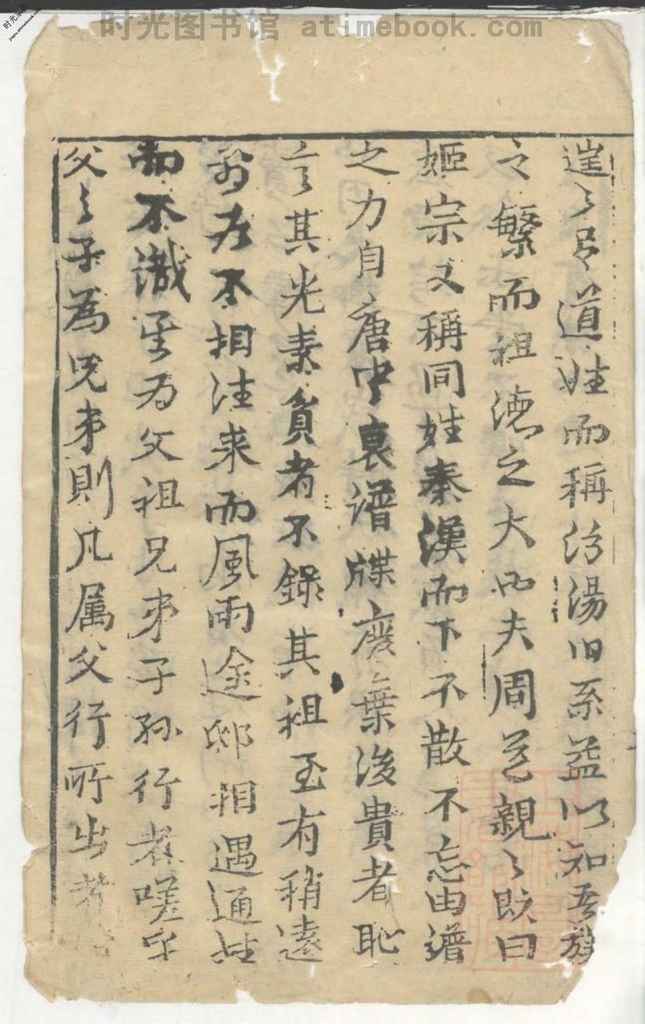 时光图书馆 atimebook.com
道姓而稱汾湯旧系益以知吾族
之繁而祖德之大也夫周道親々既曰
姬宗又稱同姓秦漢而下不散不忘由譜
之力自唐中衰譜牒廢棄後貴者恥
言其先素貧者不錄其祖至有稍遠
者不相往来而風雨途邸相遇通姓
而不識其为父祖兄弟子孫行者嗟乎
父之子為兄弟則凡属父行所出者